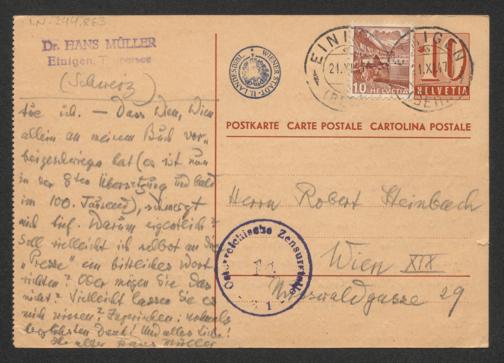 I.N. 244.863
Dr. HANS MÜLLER
Einigen, Thunersee
(Schweiz)
WIENER STADT- LANDESBIBL.
EINIGEN
21.XI.47
10 HELVETIA
10 HELVETIA
POSTKARTE CARTE POSTALE CARTOLINA POSTALE
tue ich. — Dass Wien, Wien
allein an meinem Buch vor-
hat (es ist nun
in der 8ten Übersetzung und bald
im 100. Tausend), schmerzt
mich tief. Warum eigentlich?
Soll vielleicht ich selbst an die
"Presse" ein bittliches Wort
richten? Oder mögen Sie das
nicht? Vielleicht lassen Sie es
mich wissen? Inzwischen: nochmals
herzlichsten Dank! Und alles Liebe!
Ihr alter Hans Müller
Herrn Robert Heinbach
Wien XIX
29
Österreichische Zensurstelle